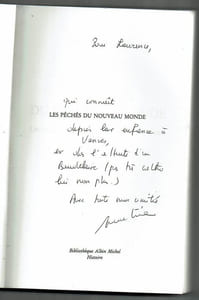 Pour Laurence,
qui connaît
LES PÉCHÉS DU NOUVEAU MONDE
depuis leur enfance à
Vanves,
et des
Baudelaire (pas très
lui non plus)
Avec toute mon amitié
Bibliothèque Albin Michel
Histoire